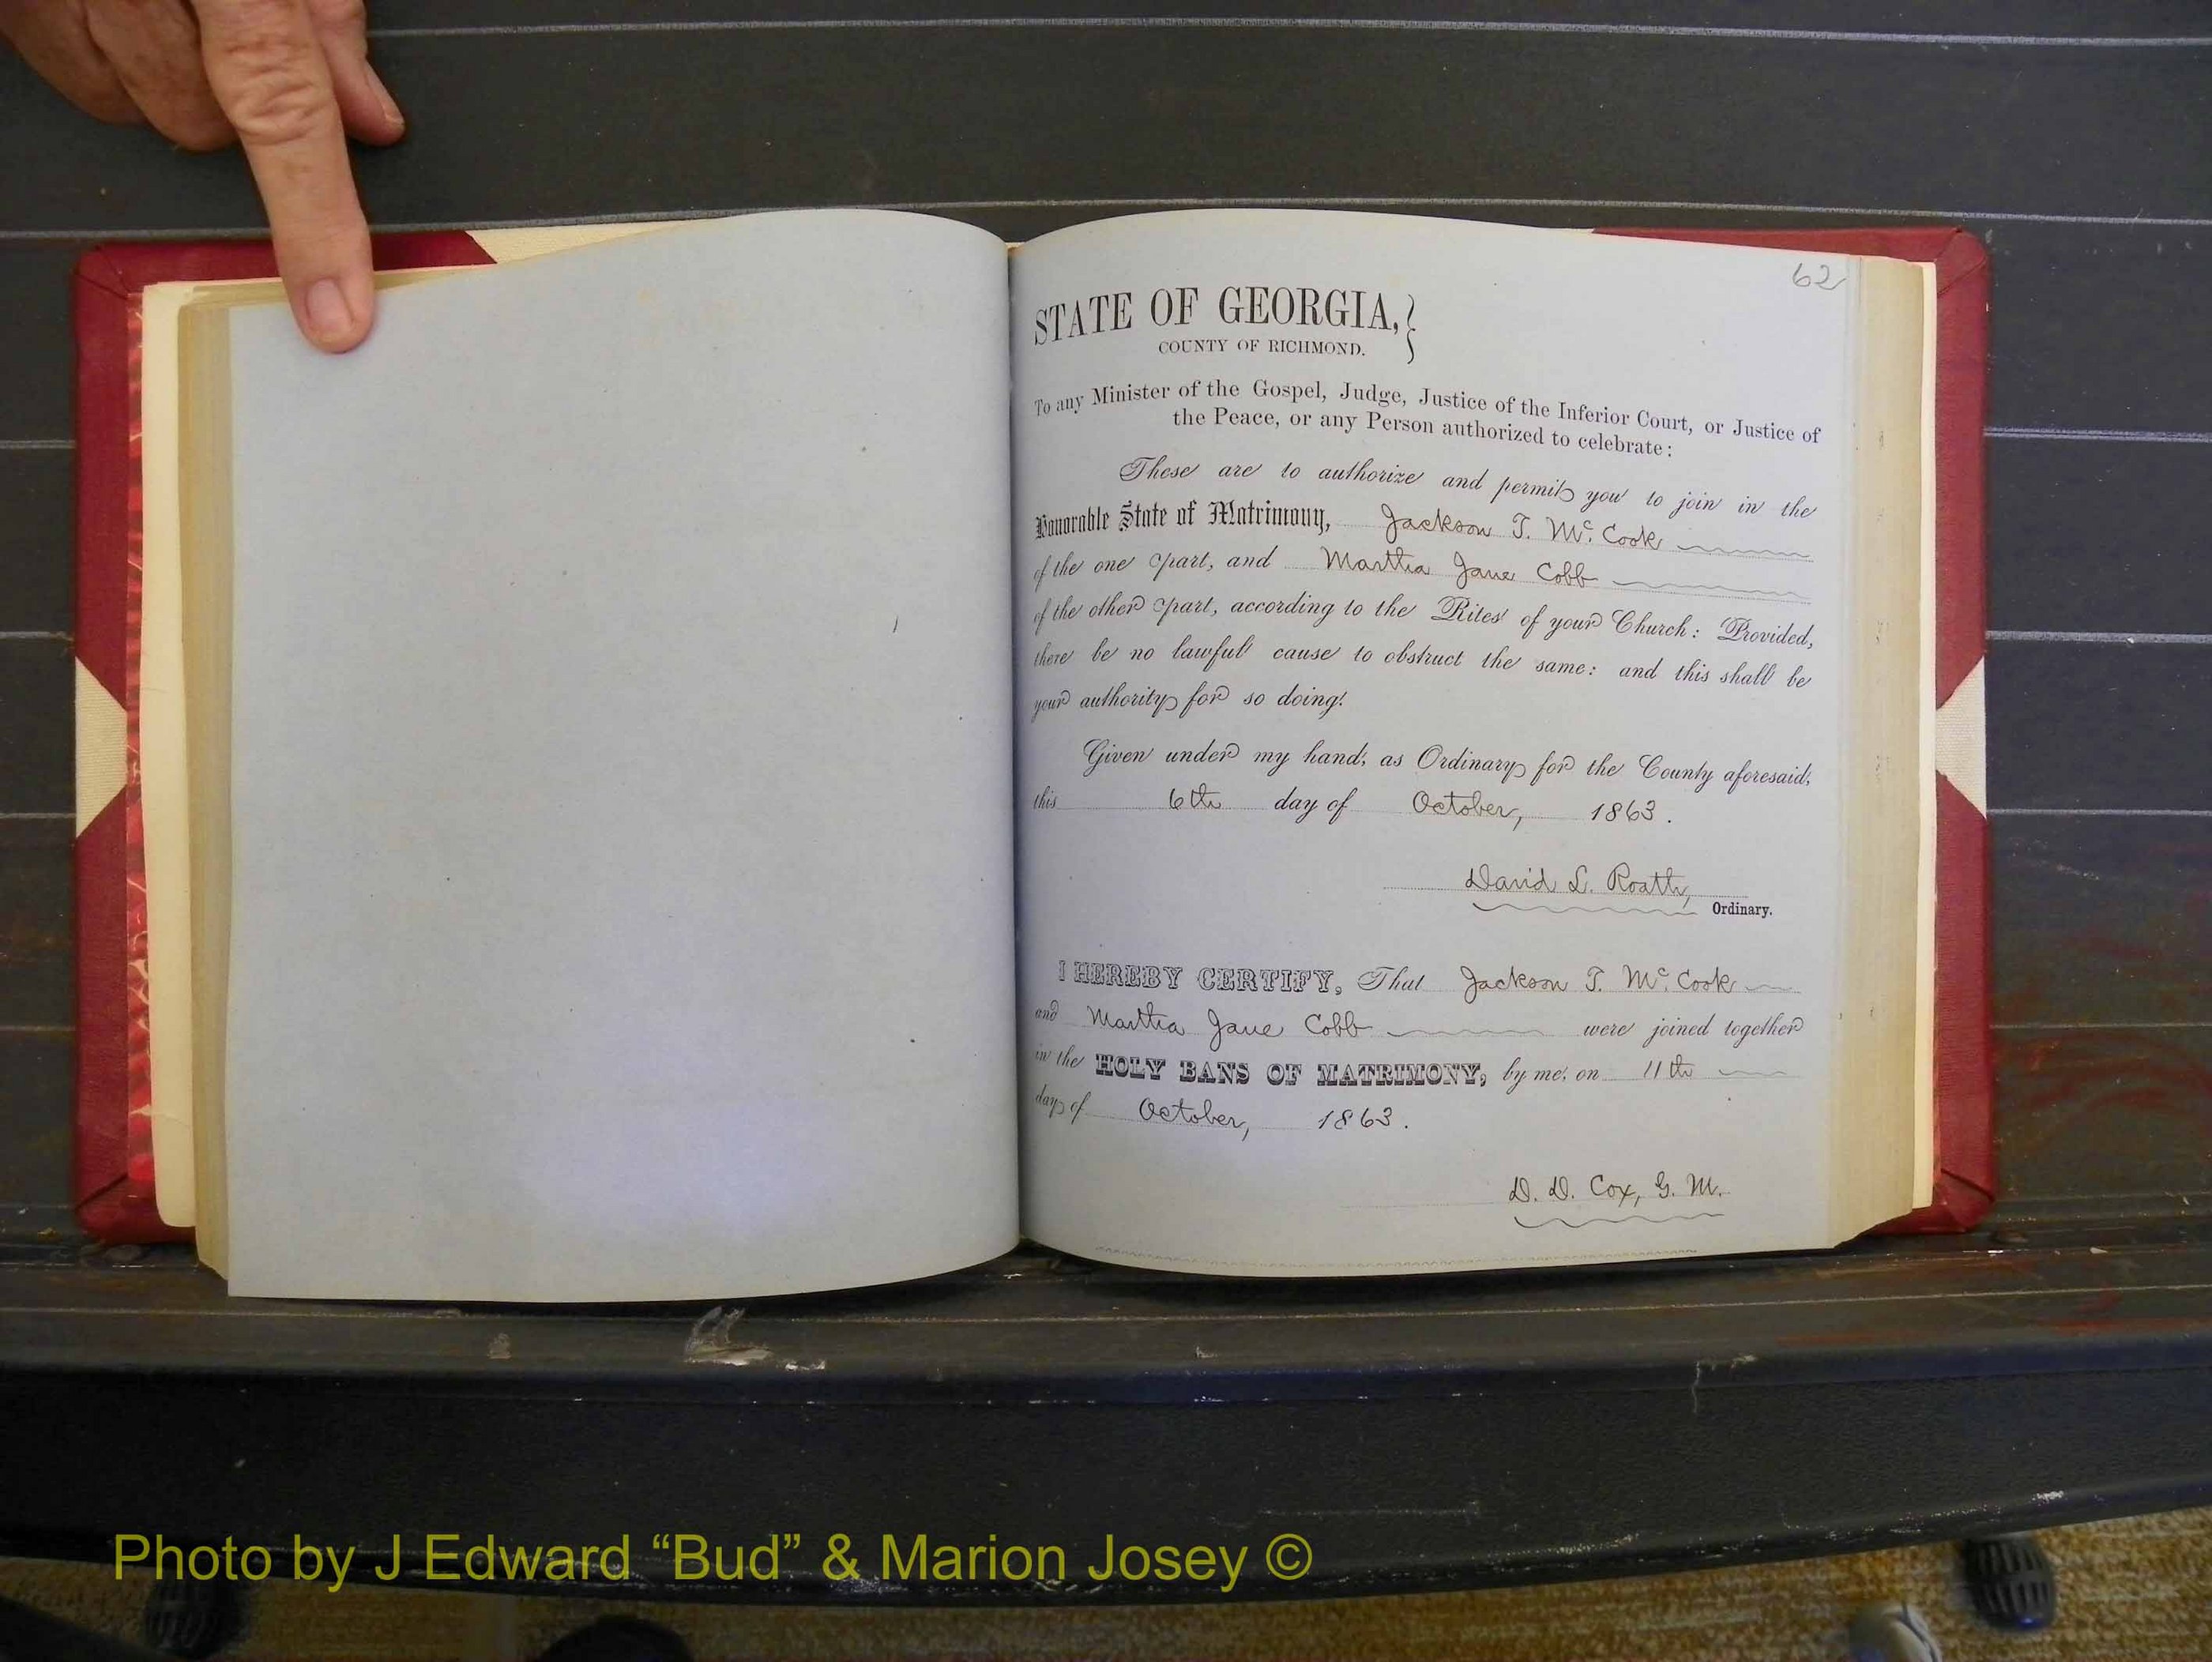 62
STATE OF GEORGIA,
COUNTY OF RICHMOND.
To any Minister of the Gospel, Judge, Justice of the Inferior Court, or Justice of
the Peace, or any Person authorized to celebrate:
These are to authorize and permit you to join in the
Honorable State of Matrimony, Jackson T. Mc. Cook
of the one part, and Martha Jane Cobb
of the other part, according to the Rites of your Church: Provided,
there be no lawful cause to obstruct the same: and this shall be
your authority for so doing.
Given under my hand, as Ordinary for the County aforesaid,
this 6th day of October, 1863.
David L. Roath,
Ordinary.
I HEREBY CERTIFY, That Jackson T. Mc. Cook
and Martha Jane Cobb were joined together
in the HOLY BANS OF MATRIMONY, by me, on 11th
day of October, 1863.
D. D. Cox, G. M.
Photo by J Edward “Bud” & Marion Josey ©